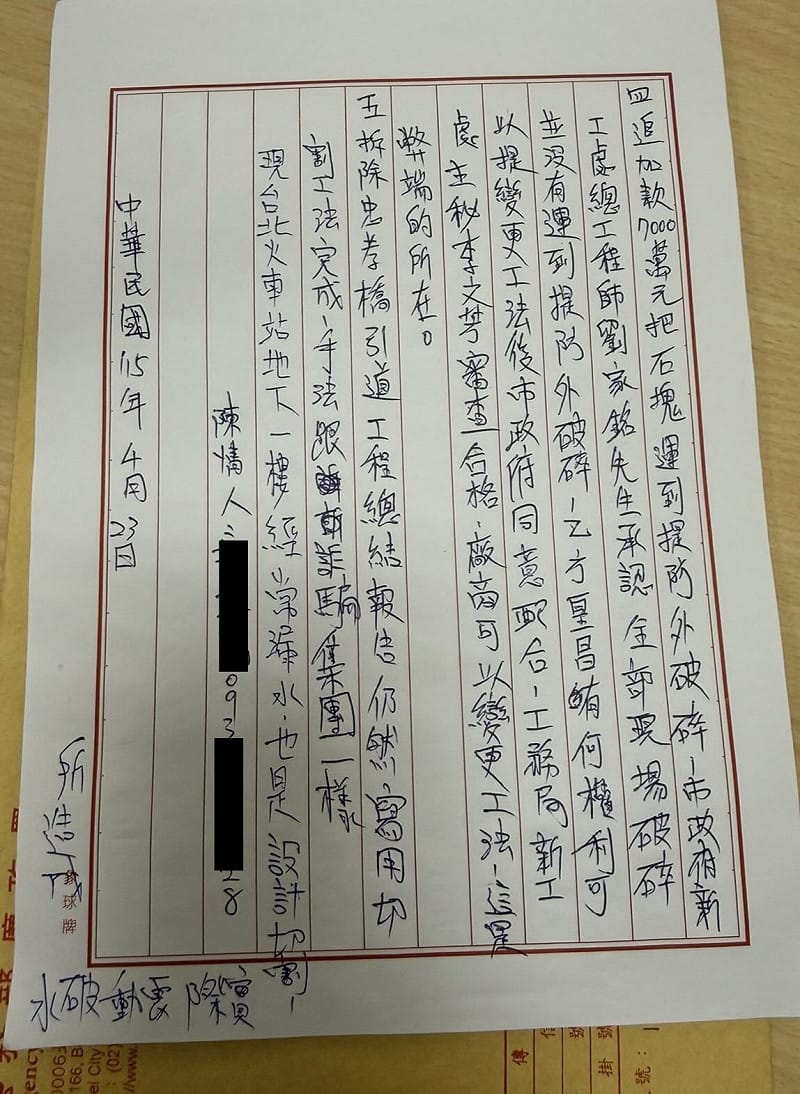 四追加款7000萬元把石塊運到提防外破碎、市政府新
工處總工程師劉家銘先生承認全部現場破碎
並沒有運到提防外破碎、乙方皇昌有何權利可
以提變更工法後市政府同意配合、工務局新工
處主秘李文芳審查合格、廠商可以變更工法、這是
弊端的所在。
五拆除忠孝橋引道工程總結報告仍然寫用切
割工法完成、手法跟詐騙集團一樣
現台北火車站地下一樓經常漏水、也是設計切割、
實際震動破水
所造成
陳情人:
093
28
中華民國115年4月23日
象球牌
傳
信
號
掛號
號:
0006
166. B
el City
: (02)
//www.
ency